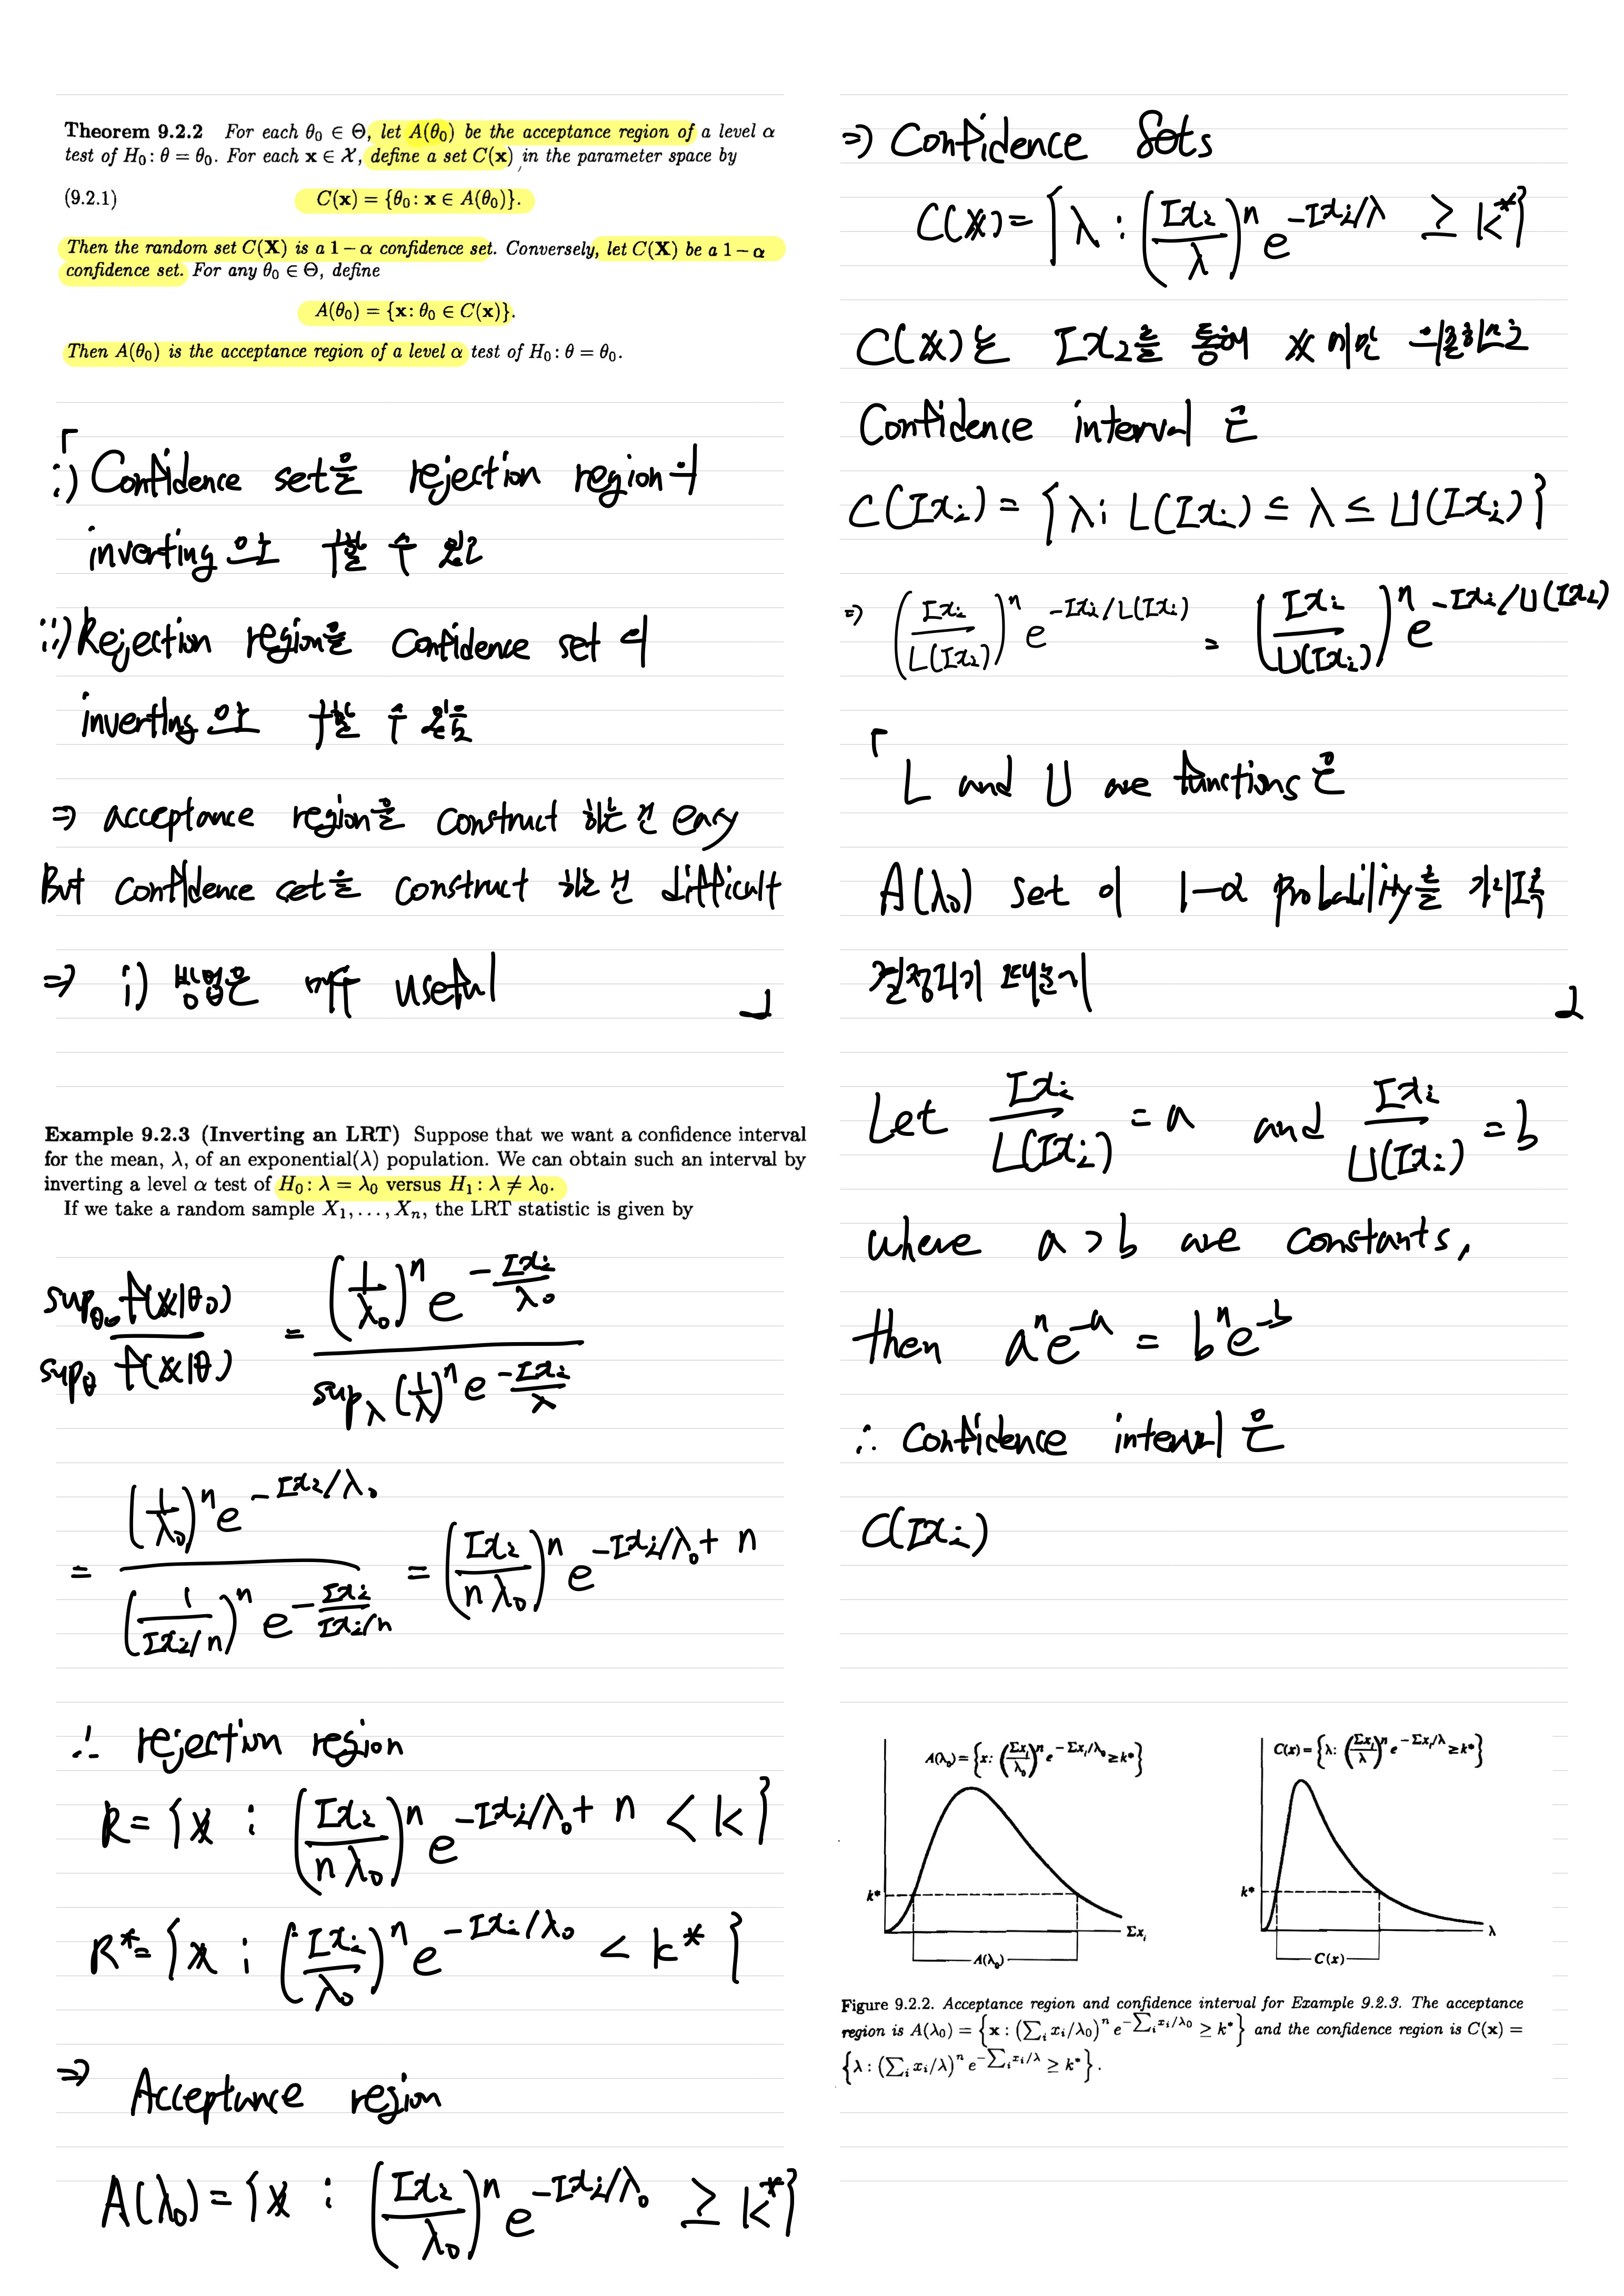 Theorem 9.2.2 For each θ₀ ∈ Θ, let A(θ₀) be the acceptance region of a level α
test of H₀: θ = θ₀. For each x ∈ 𝒳, define a set C(x) in the parameter space by
(9.2.1) C(x) = {θ₀: x ∈ A(θ₀)}.
Then the random set C(X) is a 1 − α confidence set. Conversely, let C(X) be a 1 − α
confidence set. For any θ₀ ∈ Θ, define
A(θ₀) = {x: θ₀ ∈ C(x)}.
Then A(θ₀) is the acceptance region of a level α test of H₀: θ = θ₀.
「
i) Confidence set을 rejection region의
inverting 으로 구할 수 있고
ii) Rejection region을 Confidence set 의
inverting 으로 구할 수 있음
⇒ acceptance region을 construct 하는 건 easy
But confidence set을 construct 하는 건 difficult
⇒ i) 방법은 매우 useful 」
Example 9.2.3 (Inverting an LRT) Suppose that we want a confidence interval
for the mean, λ, of an exponential(λ) population. We can obtain such an interval by
inverting a level α test of H₀: λ = λ₀ versus H₁: λ ≠ λ₀.
If we take a random sample X₁, . . . , Xₙ, the LRT statistic is given by
sup_θ₀ f(x|θ₀) / sup_θ f(x|θ) = (1/λ₀)ⁿ e^(−Σxᵢ/λ₀) / sup_λ (1/λ)ⁿ e^(−Σxᵢ/λ)
= (1/λ₀)ⁿ e^(−Σxᵢ/λ₀) / (1/(Σxᵢ/n))ⁿ e^(−Σxᵢ/(Σxᵢ/n)) = (Σxᵢ/nλ₀)ⁿ e^(−Σxᵢ/λ₀ + n)
∴ rejection region
R = {x : (Σxᵢ/nλ₀)ⁿ e^(−Σxᵢ/λ₀ + n) < k}
R* = {x : (Σxᵢ/λ₀)ⁿ e^(−Σxᵢ/λ₀) < k*}
⇒ Acceptance region
A(λ₀) = {x : (Σxᵢ/λ₀)ⁿ e^(−Σxᵢ/λ₀) ≥ k*}
⇒ Confidence Sets
C(x) = {λ : (Σxᵢ/λ)ⁿ e^(−Σxᵢ/λ) ≥ k*}
C(x)는 Σxᵢ를 통해 x 에만 의존하므로
Confidence interval 은
C(Σxᵢ) = {λ; L(Σxᵢ) ≤ λ ≤ U(Σxᵢ)}
⇒ (Σxᵢ/L(Σxᵢ))ⁿ e^(−Σxᵢ/L(Σxᵢ)) = (Σxᵢ/U(Σxᵢ))ⁿ e^(−Σxᵢ/U(Σxᵢ))
「 L and U are functions 은
A(λ₀) set 이 1−α probability를 가지도록
결정되기 때문에 」
Let Σxᵢ/L(Σxᵢ) = a and Σxᵢ/U(Σxᵢ) = b
where a > b are constants,
then aⁿe^(−a) = bⁿe^(−b)
∴ Confidence interval 은
C(Σxᵢ)
A(λ₀) = {x: (Σxᵢ/λ₀)ⁿ e^(−Σxᵢ/λ₀) ≥ k*}
k*
Σxᵢ
A(λ₀)
C(x) = {λ: (Σxᵢ/λ)ⁿ e^(−Σxᵢ/λ) ≥ k*}
k*
λ
C(x)
Figure 9.2.2. Acceptance region and confidence interval for Example 9.2.3. The acceptance
region is A(λ₀) = {x : (Σᵢ xᵢ/λ₀)ⁿ e^(−Σᵢ xᵢ/λ₀) ≥ k*} and the confidence region is C(x) =
{λ : (Σᵢ xᵢ/λ)ⁿ e^(−Σᵢ xᵢ/λ) ≥ k*}.